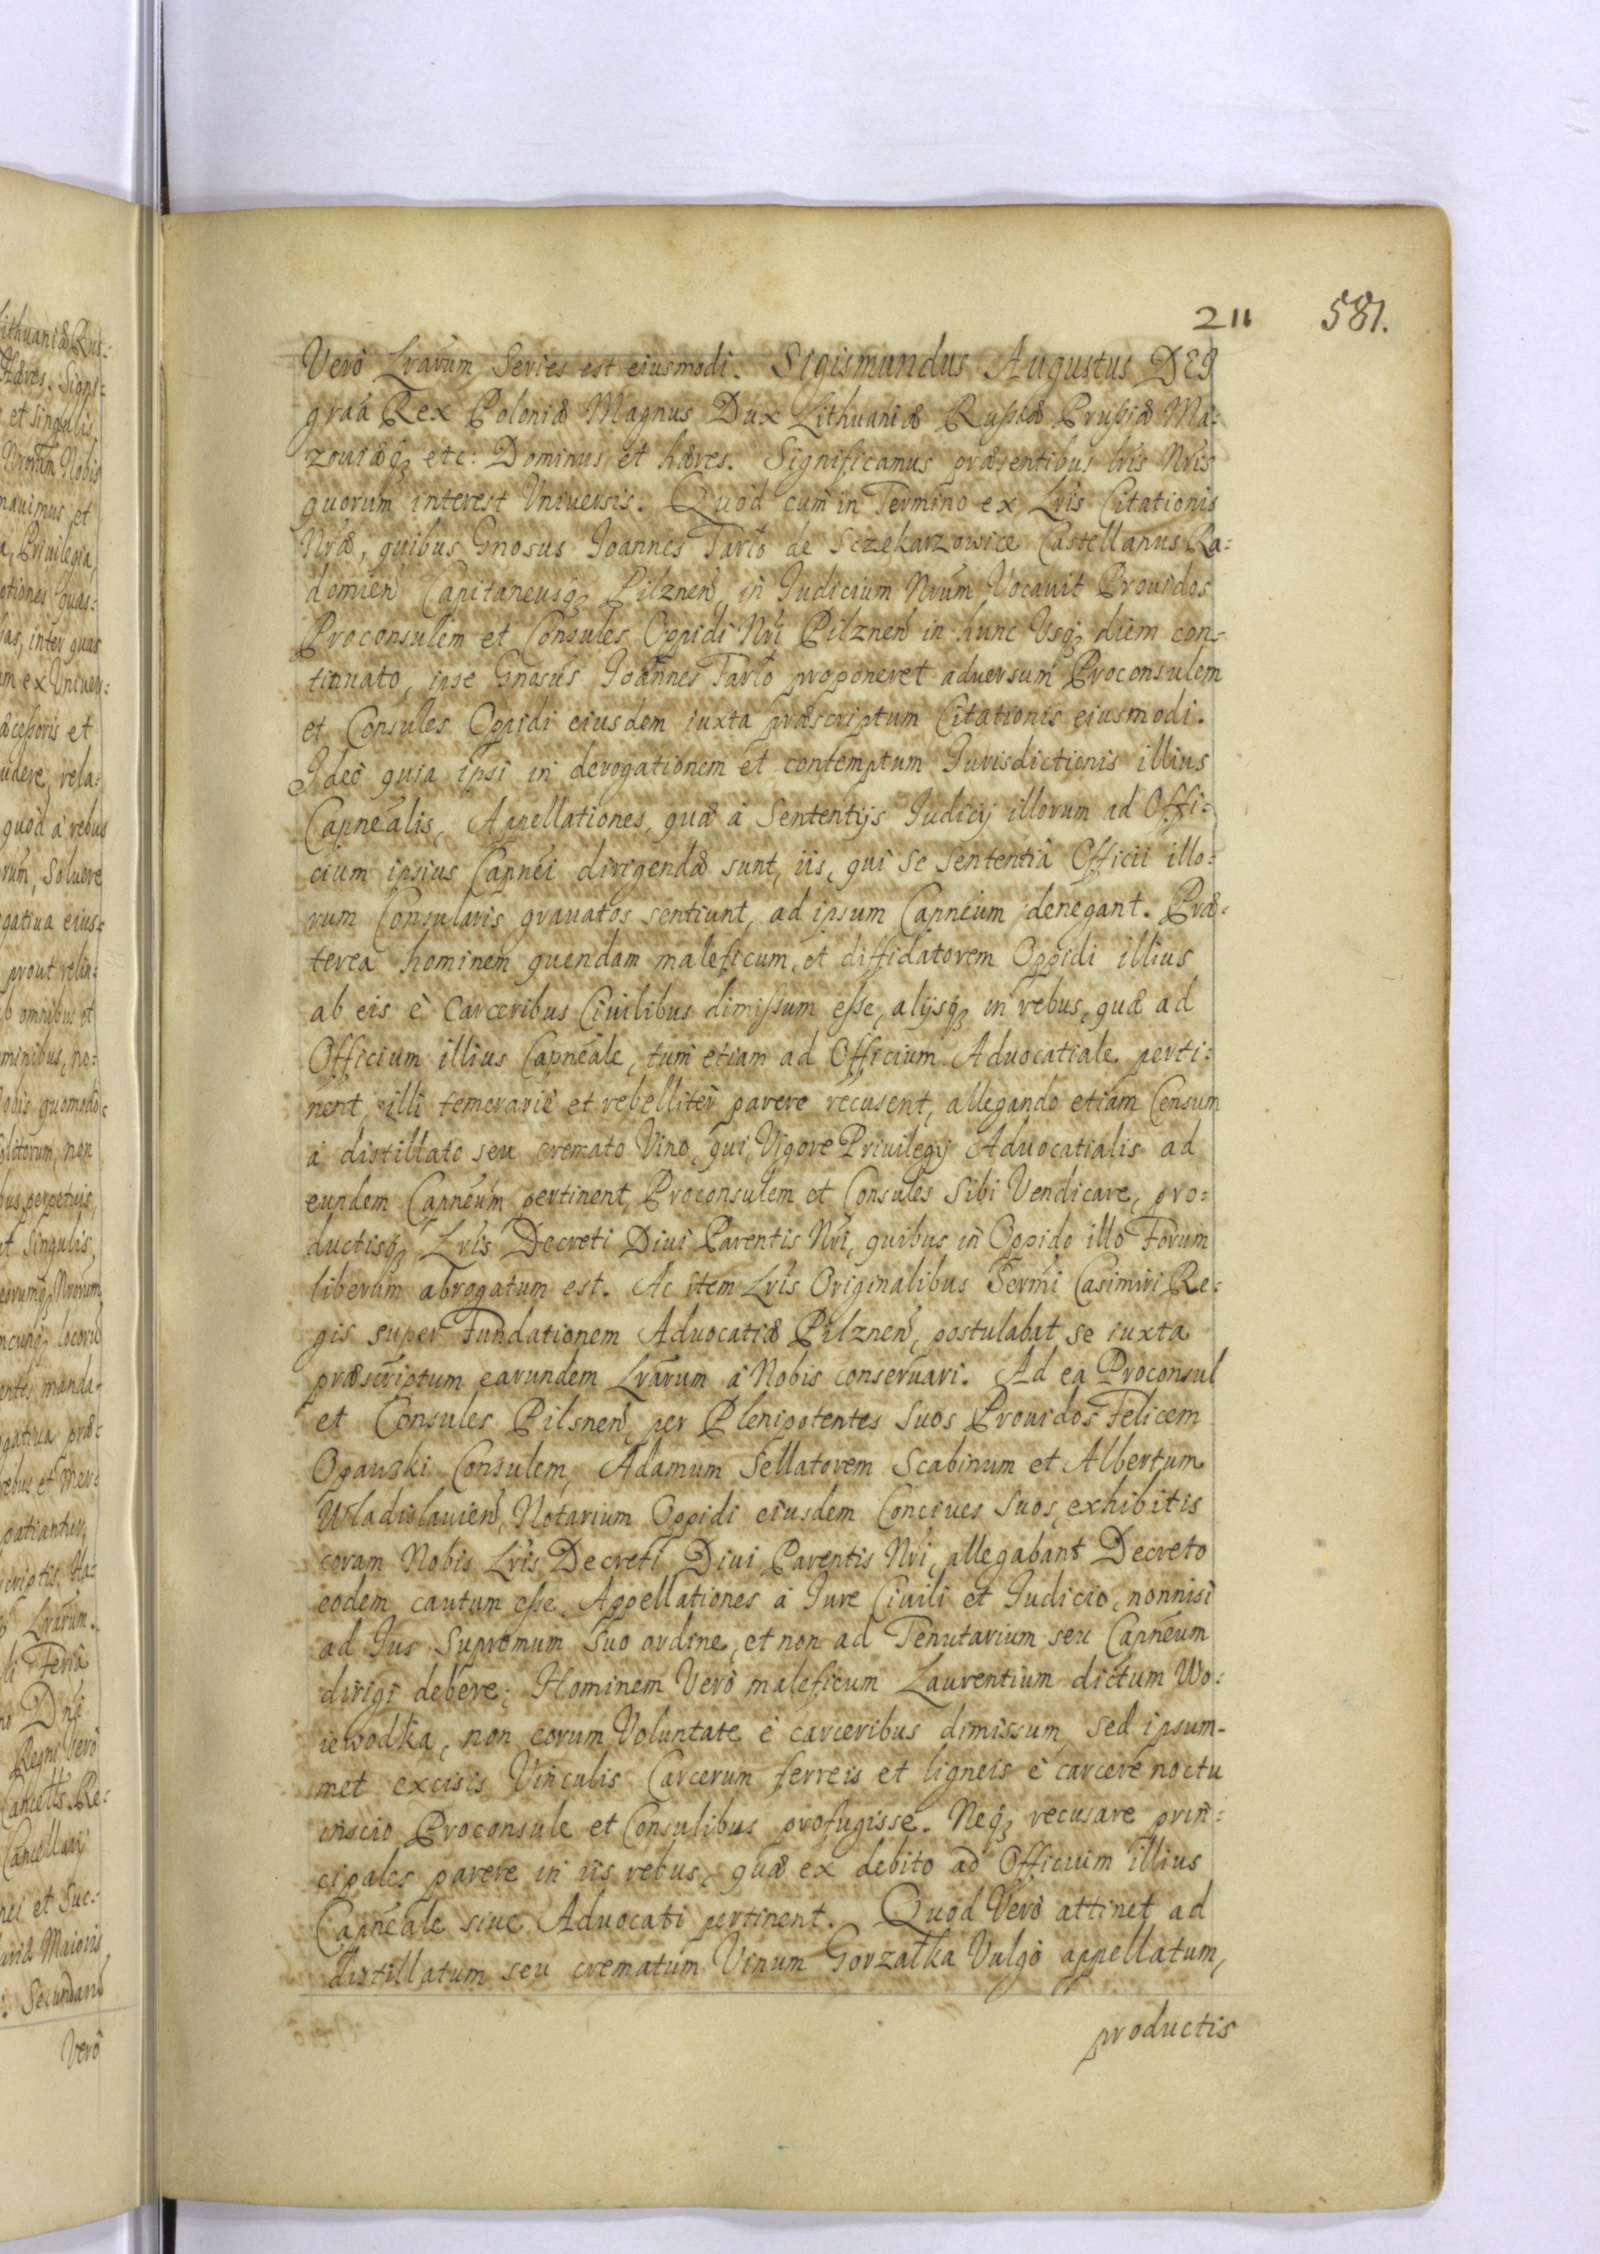 211 581.
Verò Lrarum Series est eiusmodi. Sigismundus Augustus DEI
graã Rex Poloniæ Magnus Dux Lithuaniæ Rußiæ Prußiæ Ma=
zouiæq3 etc: Dominus et hæres. Significamus præsentibus lris Nris
quorum interest Vniuersis. Quod cum in Termino ex Lris Citationis
Nræ, quibus Gnosus Joannes Tarło de Sczekarzowice Castellanus Ra=
domień Capitaneusq3 Pilzneń, in Judicium Nrum Vocauit Prouidos
Proconsulem et Consules Oppidi Nri Pilzneń in hunc Vsq3 diem con=
tinuato, ipse Gnosus Joannes Tarło proponeret aduersum Proconsulem
et Consules Oppidi eiusdem iuxta præscriptum Citationis eiusmodi.
Ideò quia ipsi in derogationem et contemptum Jurisdictionis illius
Capnealis, Appellationes, quæ à Sententijs Judicij illorum ad Offi=
cium ipsius Capnei dirigendæ sunt, iis, qui se sententià Officii illo=
rum Consularis grauatos sentiunt, ad ipsum Capneum denegant. Præ=
tereà hominem quendam maleficum, et diffidatorem Oppidi illius
ab eis è Carceribus Ciuilibus dimißum eße, alijsq3 in rebus, quæ ad
Officium illius Capneale, tum etiam ad Officium Aduocatiale perti=
nent, illi temerariè et rebelliter parere recusent, allegando etiam Censum
à distillato seu cremato Vino, qui, Vigore Priuilegij Aduocatialis ad
eundem Capneum pertinent, Proconsulem et Consules Sibi Vendicare, pro=
ductisq3 Lris Decreti Diui Parentis Nri, quibus in Oppido illo Forum
liberum abrogatum est. Ac item Lris Originalibus Sermi Casimiri Re=
gis super Fundationem Aduocatiæ Pilzneń, postulabat se iuxta
præscriptum earundem Lrarum à Nobis conseruari. Ad ea Proconsul
et Consules Pilsneń, per Plenipotentes Suos Prouidos Felicem
Opauski Consulem, Adamum Sellatorem Scabinum et Albertum
Wladislauień, Notarium Oppidi eiusdem Conciues Suos, exhibitis
coram Nobis Lris Decreti Diui Parentis Nri, allegabant Decreto
eodem cautum eße, Appellationes à Jure Ciuili et Judicio, nonnisi
ad Jus Supremum Suo ordine, et non ad Tenutarium seu Capneum
dirigi debere; Hominem Verò maleficum Laurentium dictum Wo=
iewodka, non eorum Voluntate è carceribus dimissum, sed ipsum-
met excisis Vinculis Carcerum ferreis et ligneis è carcere noctu
inscio Proconsule et Consulibus profugisse. Neq3 recusare prin=
cipales parere in iis rebus, quæ ex debito ad Officium illius
Capneale siue Aduocati pertinent. Quod Verò attinet ad
distillatum seu crematum Vinum Gorzałka Vulgò appellatum,
productis